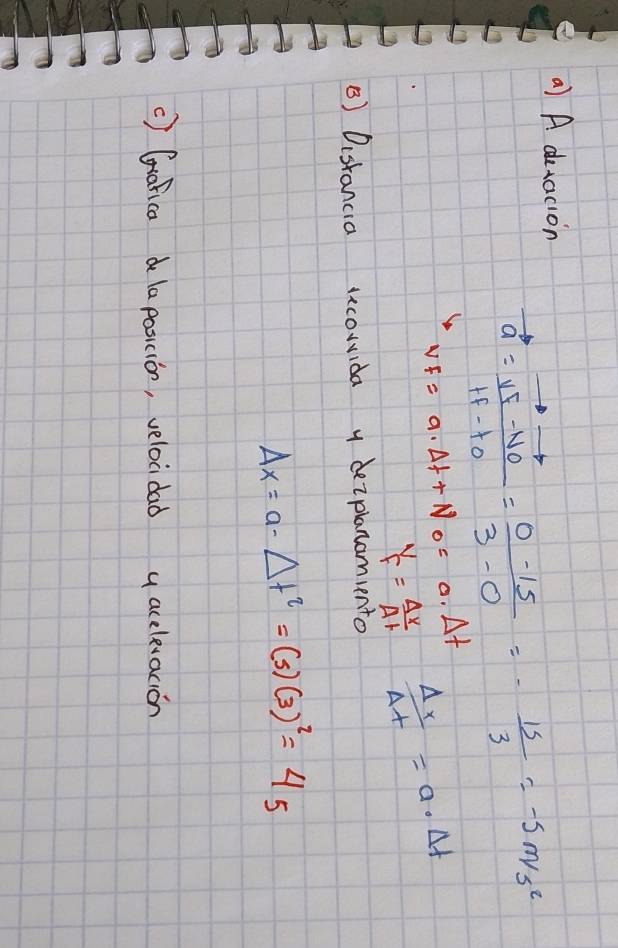 a) Aceleración
a⃗ = v⃗f - v⃗0 / tf - t0 = 0 - 15 / 3 - 0 = - 15 / 3 = -5 m/s²
↳ vf = a. Δt + v0 = a. Δt
vf = Δx / Δt Δx / Δt = a. Δt
B) Distancia recorrida y dezplazamiento
Δx = a. Δt² = (5)(3)² = 45
c) Grafica de la posición, velocidad y aceleración